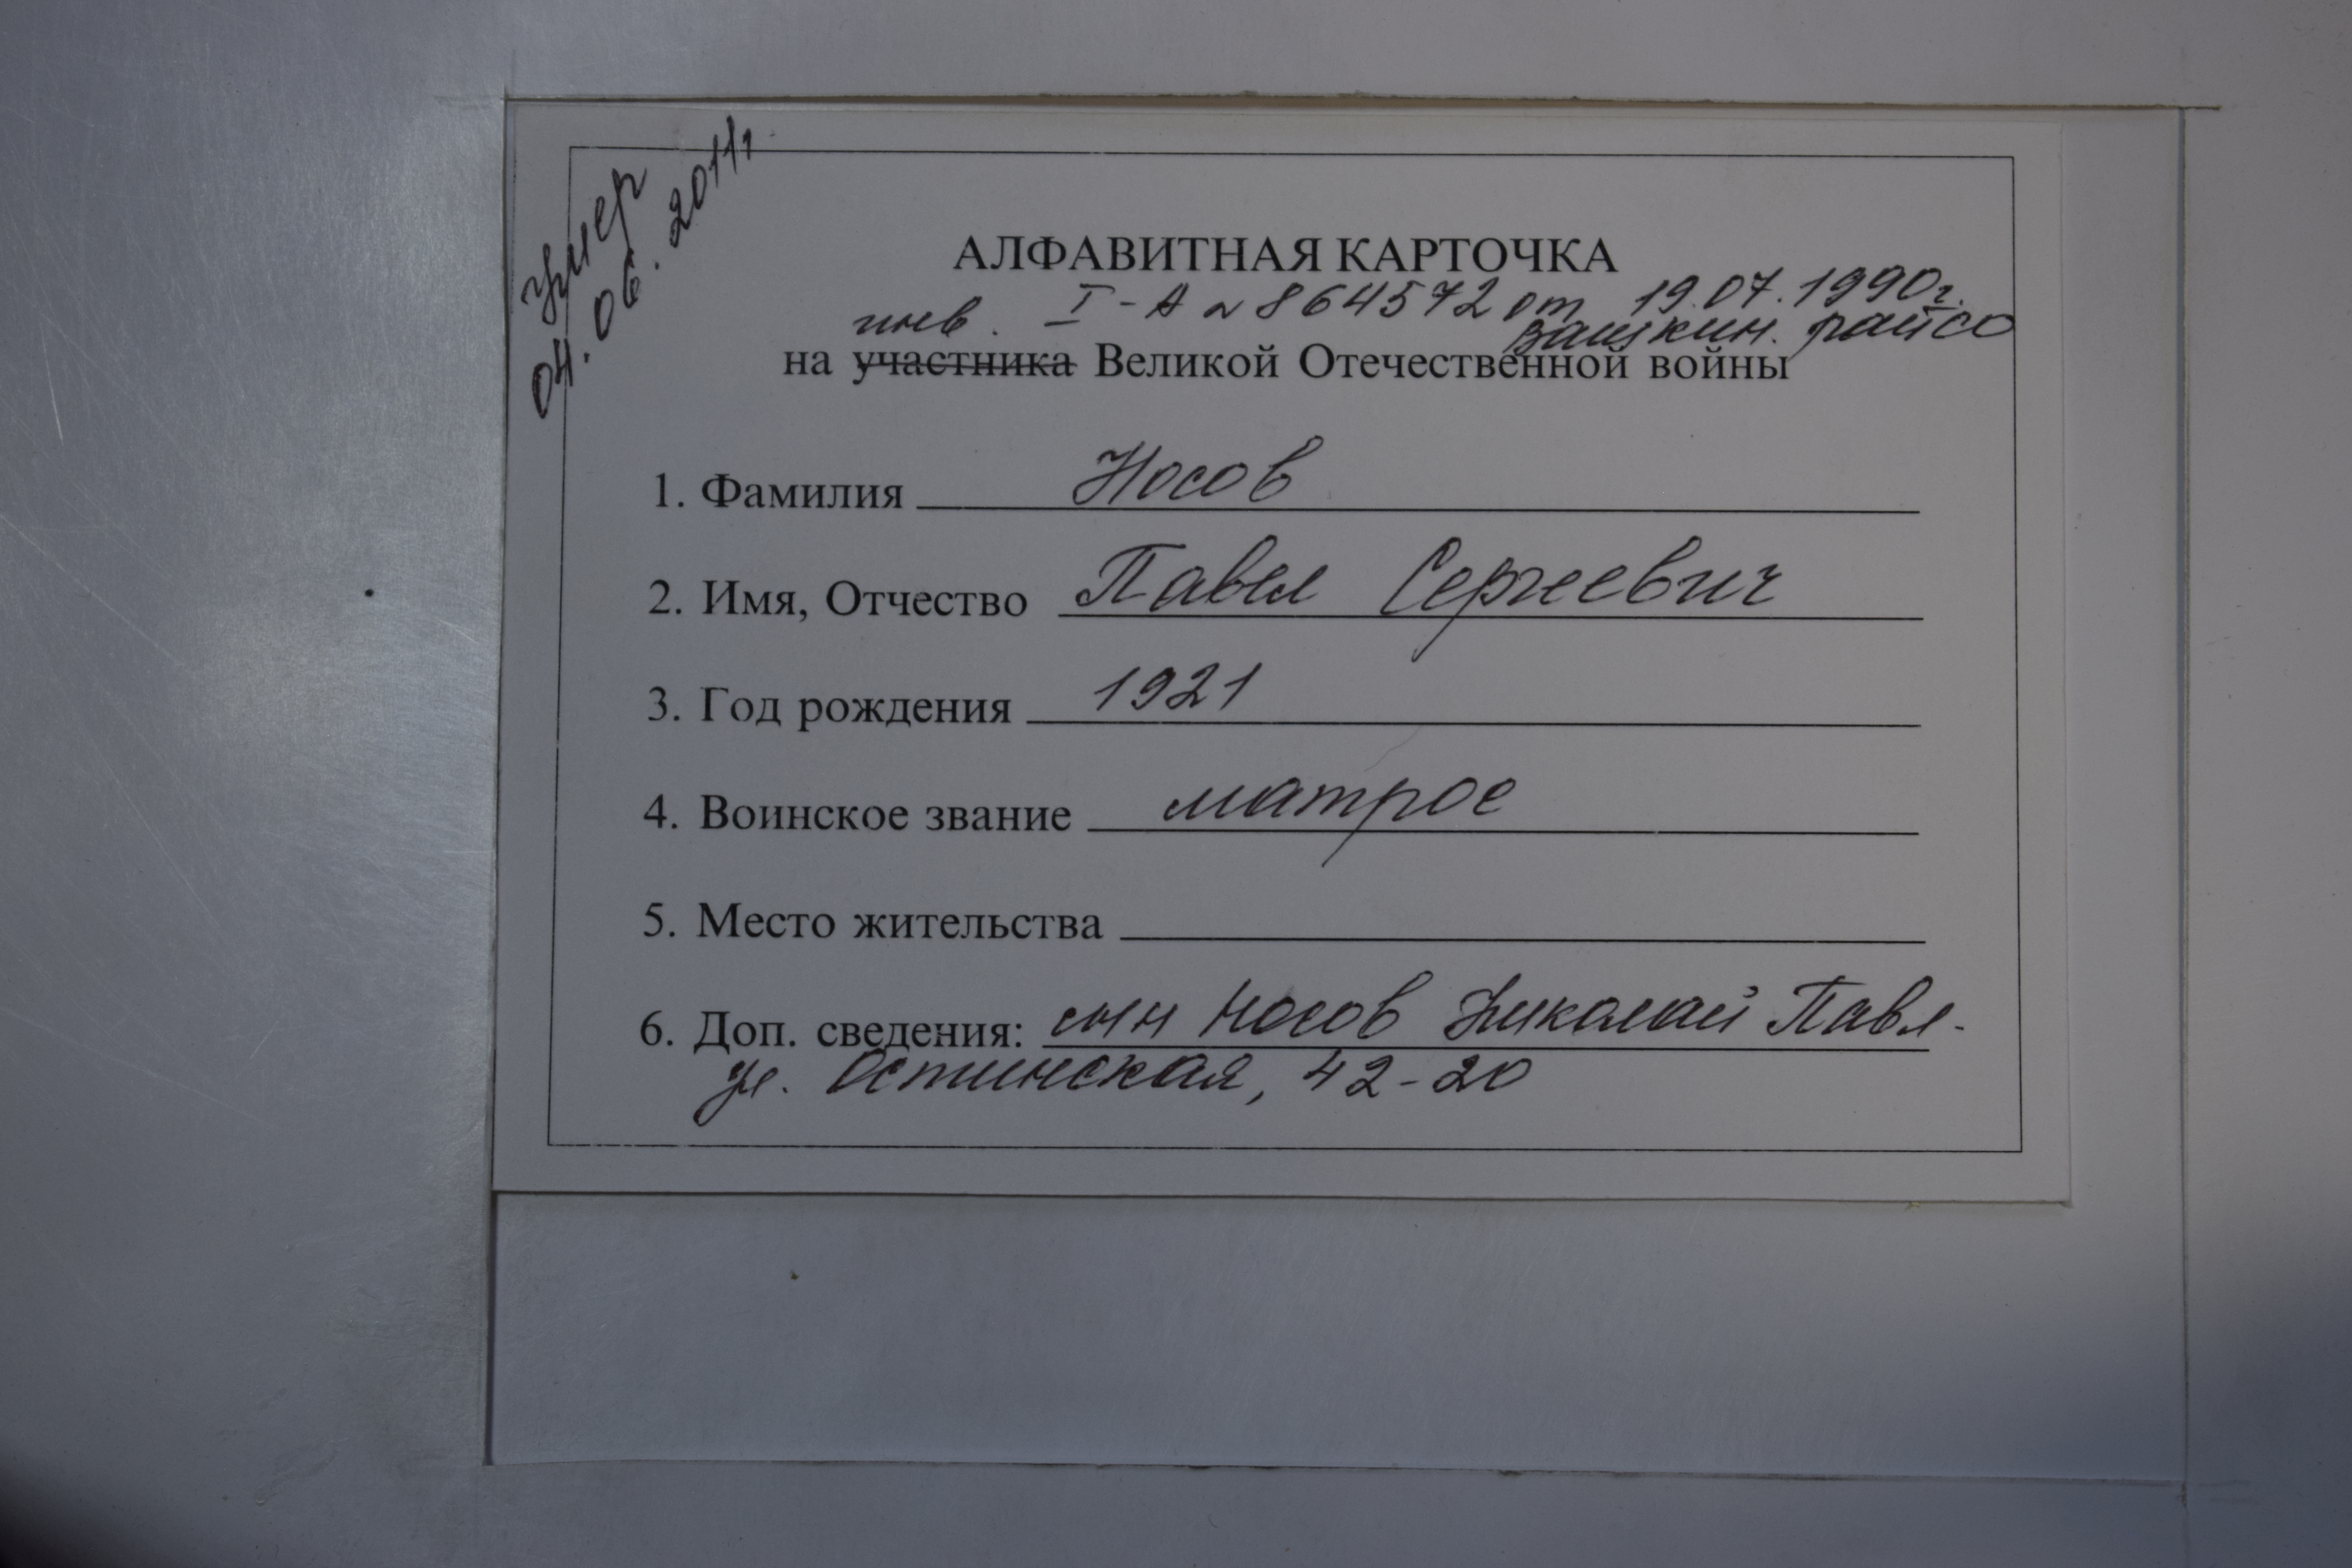 умер
04.06.2011г.
АЛФАВИТНАЯ КАРТОЧКА
инв. I-А № 864572 от 19.07.1990г.
Вашкин. райсо
на участника Великой Отечественной войны
1. Фамилия Носов
2. Имя, Отчество Павел Сергеевич
3. Год рождения 1921
4. Воинское звание матрос
5. Место жительства
6. Доп. сведения: сын Носов Николай Павл-
ул. Остинская, 42-20